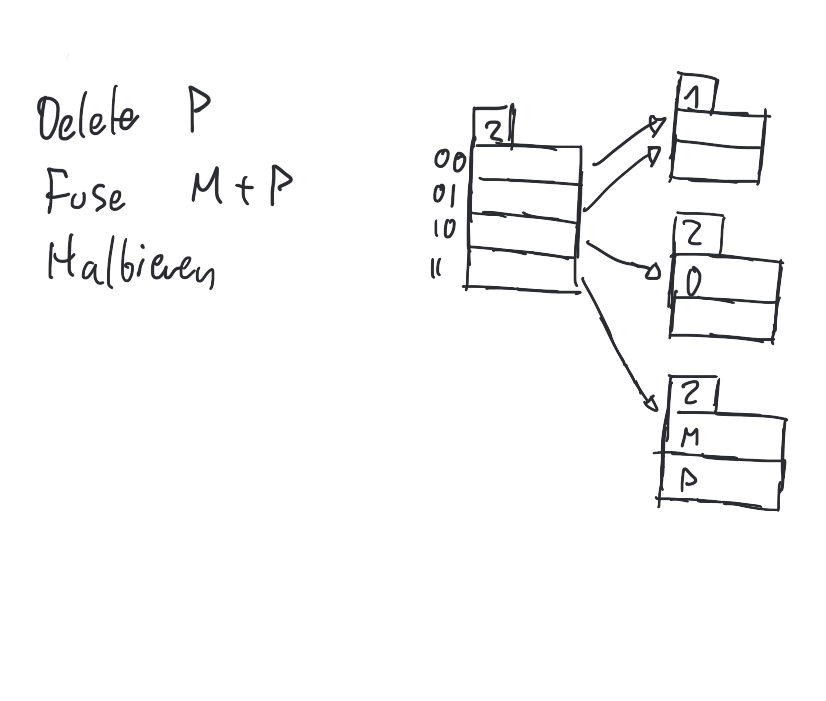 Delete P
Fuse M + P
Halbieren
2
00
01
10
11
1
2
0
2
M
P